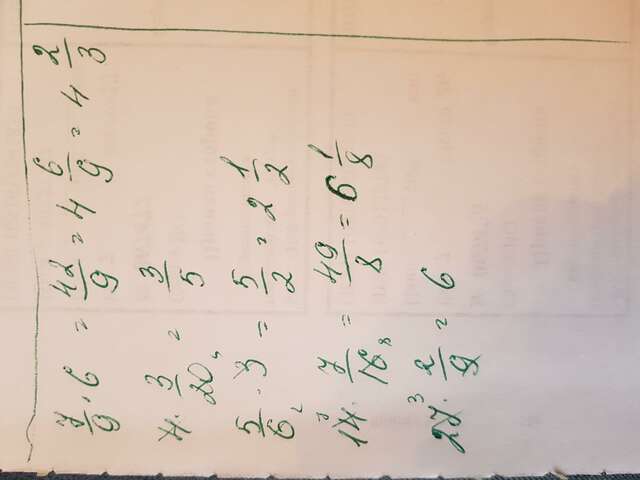 7/9 · 6 = 42/9 = 4 6/9 = 4 2/3
4 · 3/20 5 = 3/5
5/6 2 · 3 = 5/2 = 2 1/2
7 14 · 7/16 8 = 49/8 = 6 1/8
3 27 · 2/9 = 6